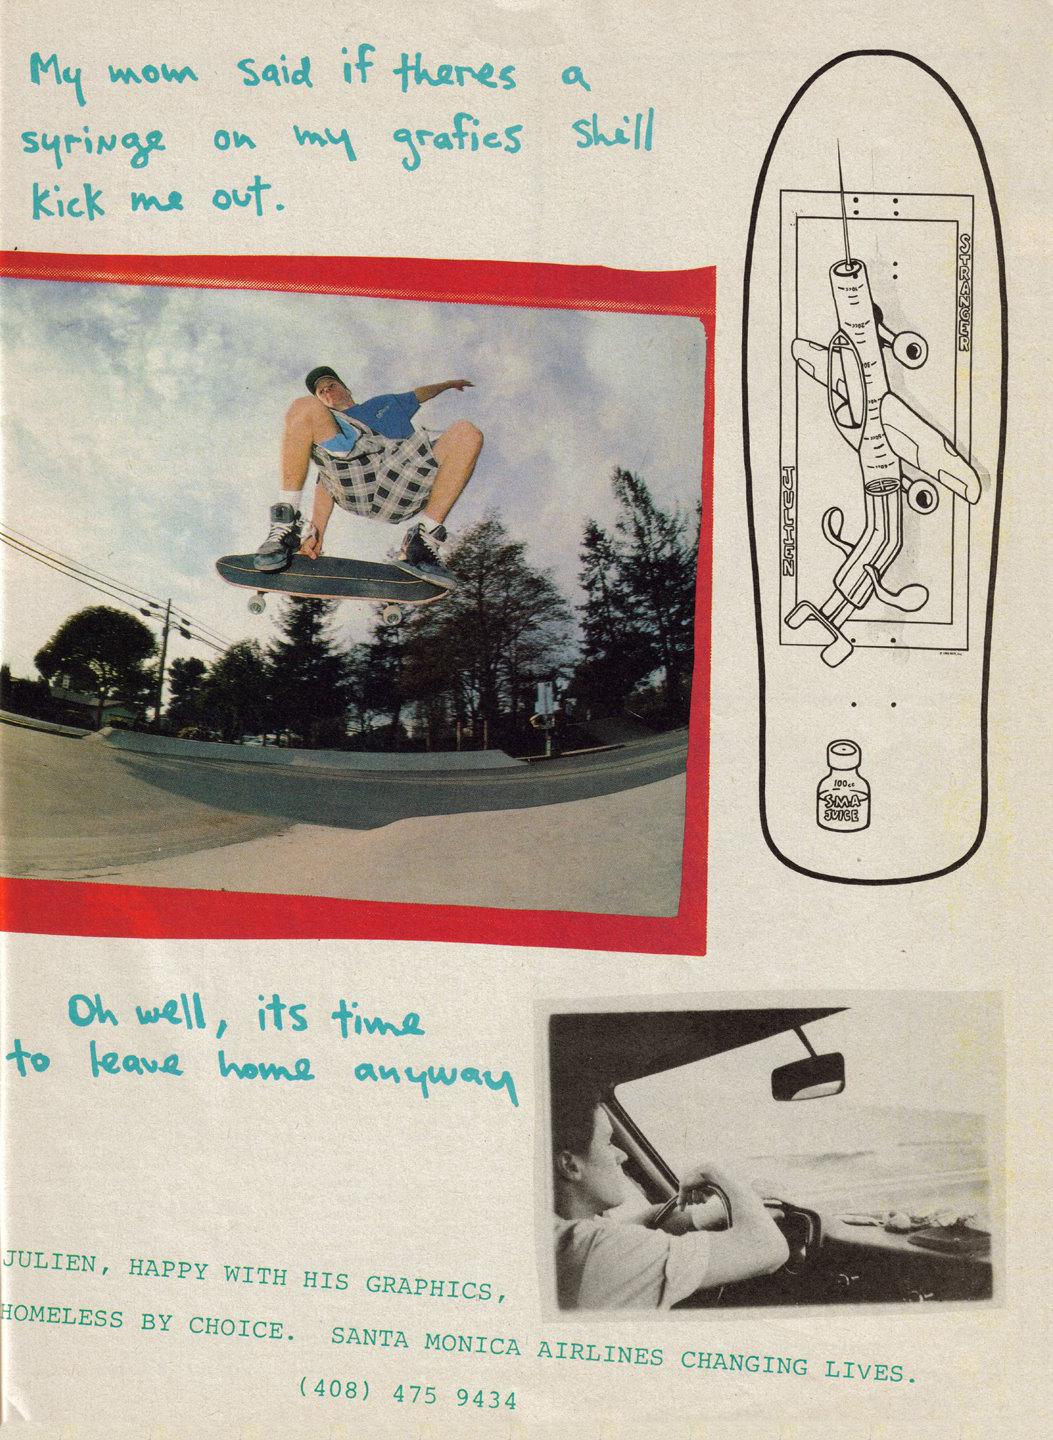 My mom said if theres a
syringe on my grafics she'll
kick me out.
STRANGER
JULIEN
100cc
SMA
JUICE
Oh well, its time
to leave home anyway
JULIEN, HAPPY WITH HIS GRAPHICS,
HOMELESS BY CHOICE. SANTA MONICA AIRLINES CHANGING LIVES.
(408) 475 9434